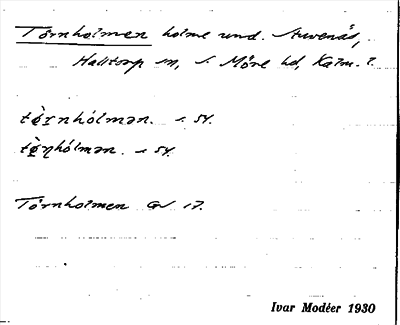 Törnholmen holme und. Arvenäs,
Halltorp sn, S. Möre hd, Kalm. l.
tö̀rnhólmən. s 54.
tö̀ṇhólmən. s 54.
Törnholmen GV 17.
Ivar Modéer 1930